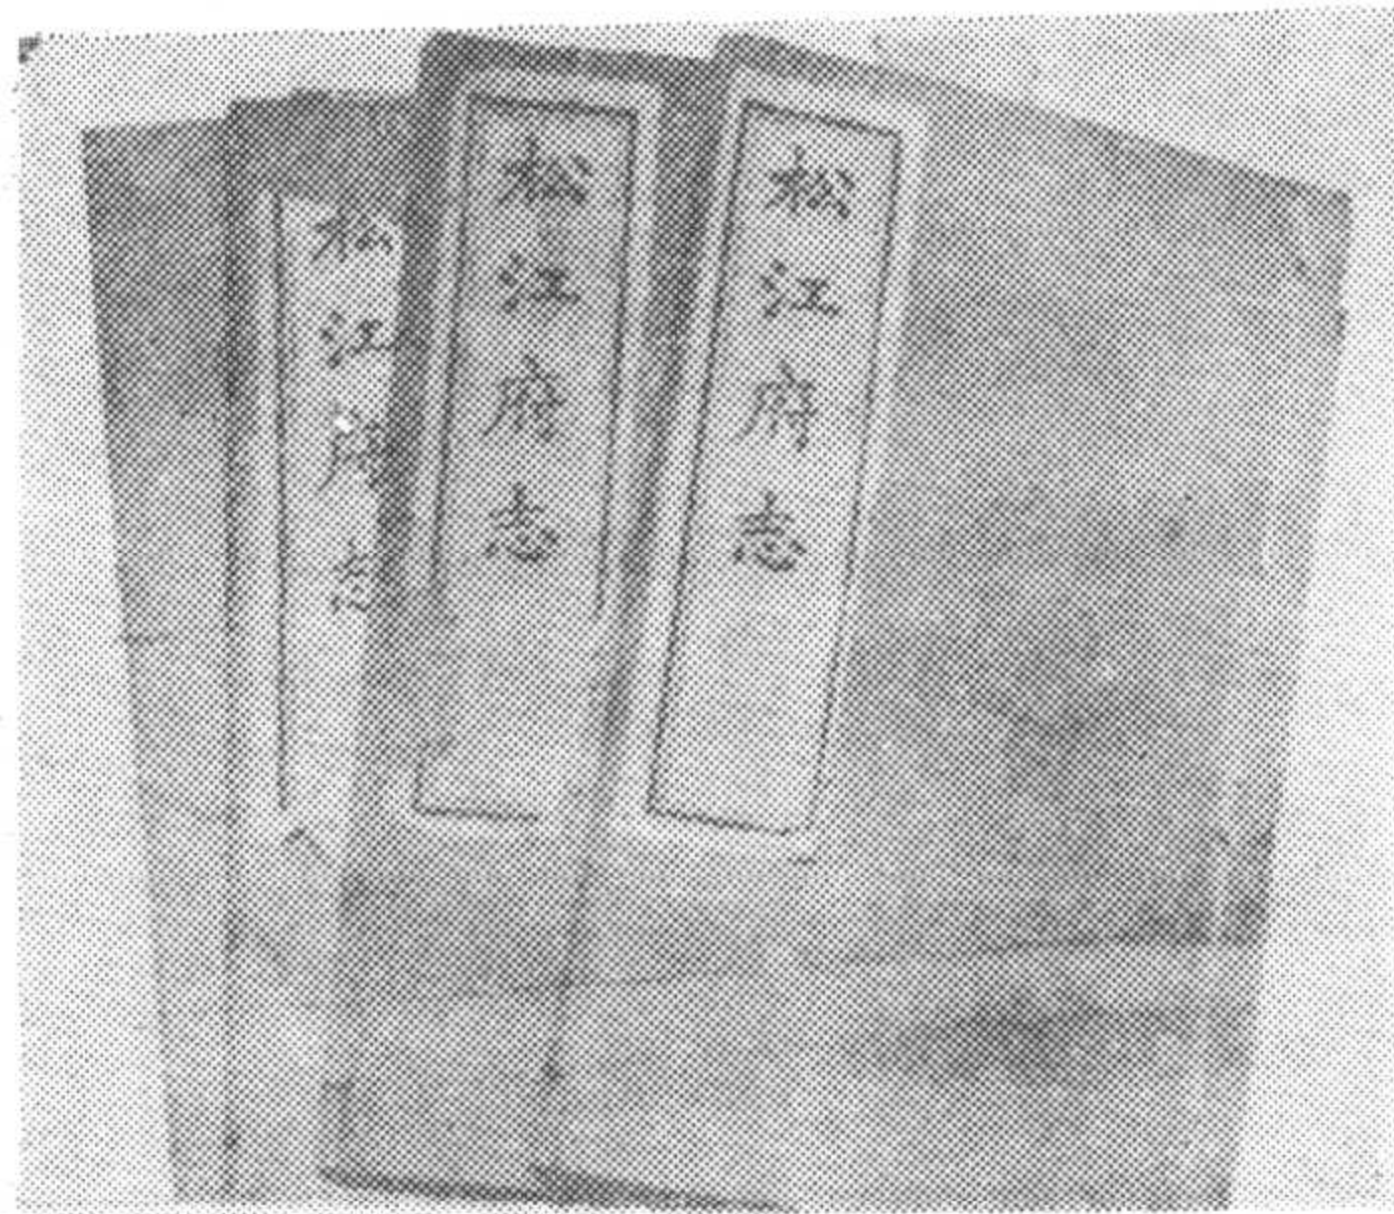 松江府志
松江府志
松江府志